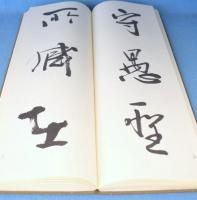 守愚聖
所臧在